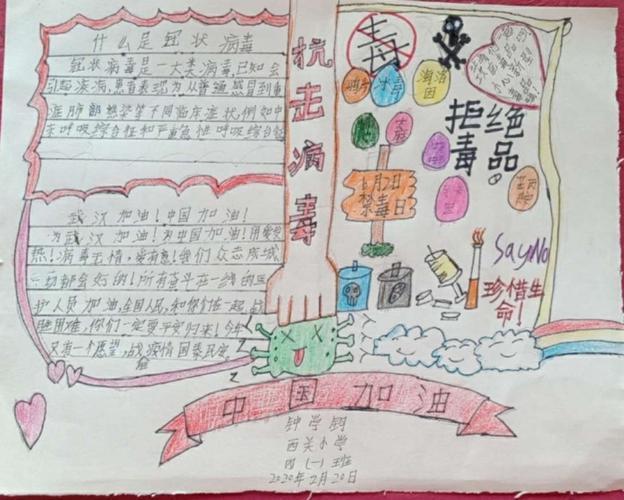 什么是冠状病毒
冠状病毒是一大类病毒,已知会
引起疾病,患者表现为从普通感冒到重
症肺部感染等不同临床症状,例如中
东呼吸综合征和严重急性呼吸综合征
武汉加油!中国加油!
为武汉加油!为中国加油!用爱
热!病毒无情,爱有意!我们众志成城
一切都会好的!所有奋斗在一线的医
护人员加油,全国人民,和你们在一起,战
胜困难,你们一定要平安归来!今年
又有一个愿望,战疫情国泰民安
抗击病毒
毒
鸦片
冰毒
海洛因
拒绝
毒品。
禁毒日
Say No
珍惜生
命!
中国加油
西关小学
四(一)班
2020年2月20日